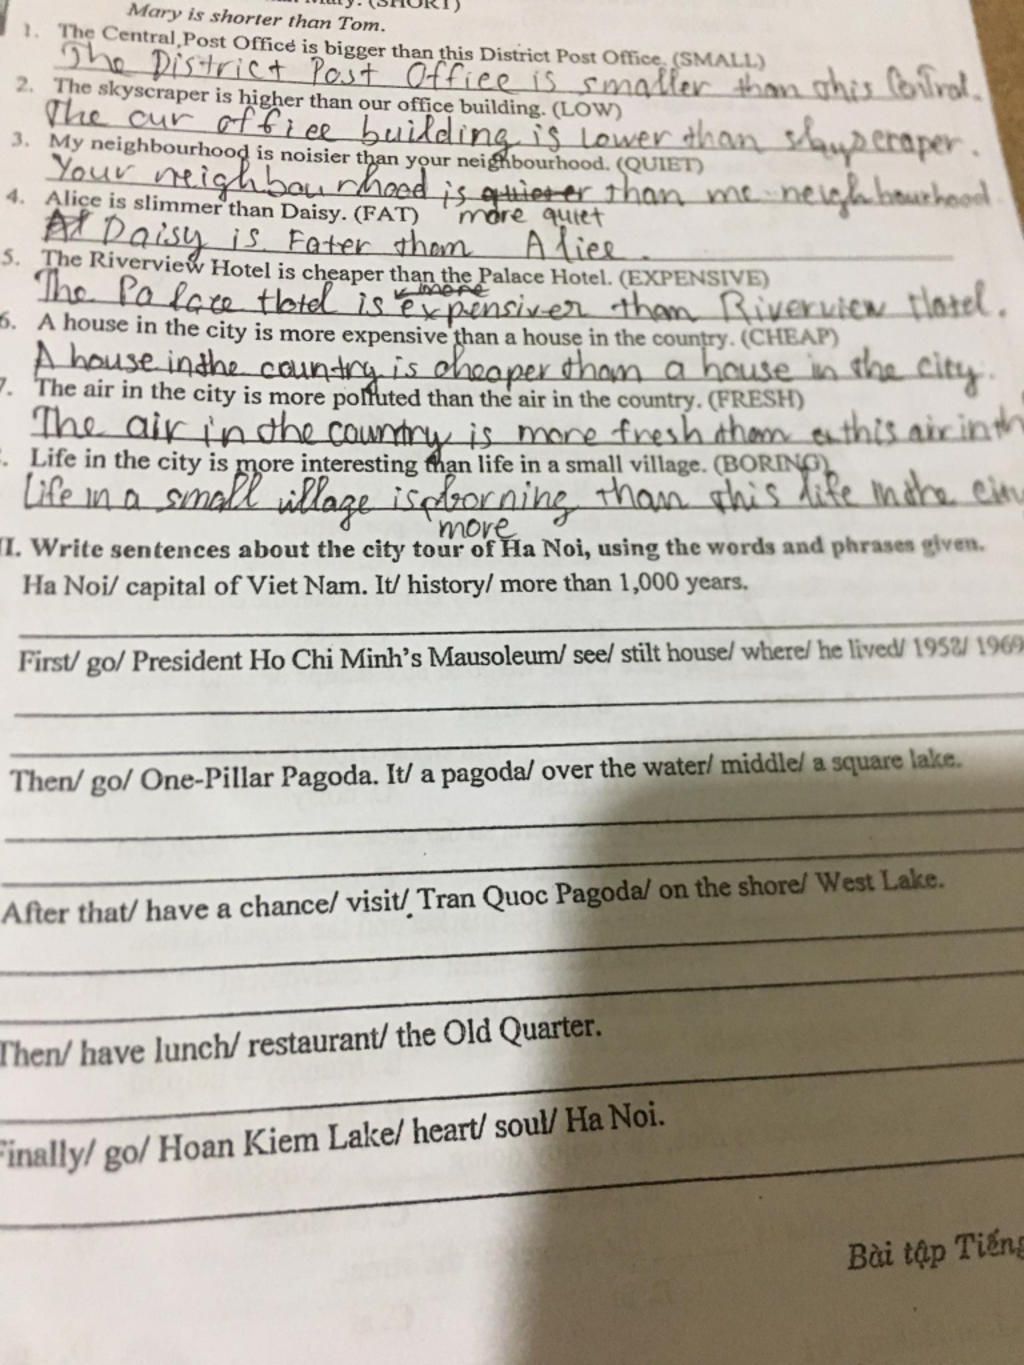 Mary is shorter than Tom.
1. The Central Post Office is bigger than this District Post Office. (SMALL)
The District Post Office is smaller than this Central.
2. The skyscraper is higher than our office building. (LOW)
The our office building is lower than skyscraper.
3. My neighbourhood is noisier than your neighbourhood. (QUIET)
Your neighbourhood is quieter than me neighbourhood
more quiet
4. Alice is slimmer than Daisy. (FAT)
Daisy is Fater than Alice.
5. The Riverview Hotel is cheaper than the Palace Hotel. (EXPENSIVE)
more
The Palace Hotel is expensiver than Riverview Hotel.
6. A house in the city is more expensive than a house in the country. (CHEAP)
A house in the country is cheaper than a house in the city.
7. The air in the city is more polluted than the air in the country. (FRESH)
The air in the country is more fresh than this air in th
. Life in the city is more interesting than life in a small village. (BORING)
Life in a small village is borning than this life in the city
more
II. Write sentences about the city tour of Ha Noi, using the words and phrases given.
Ha Noi/ capital of Viet Nam. It/ history/ more than 1,000 years.
First/ go/ President Ho Chi Minh's Mausoleum/ see/ stilt house/ where/ he lived/ 1958/ 1969
Then/ go/ One-Pillar Pagoda. It/ a pagoda/ over the water/ middle/ a square lake.
After that/ have a chance/ visit/ Tran Quoc Pagoda/ on the shore/ West Lake.
Then/ have lunch/ restaurant/ the Old Quarter.
Finally/ go/ Hoan Kiem Lake/ heart/ soul/ Ha Noi.
Bài tập Tiếng